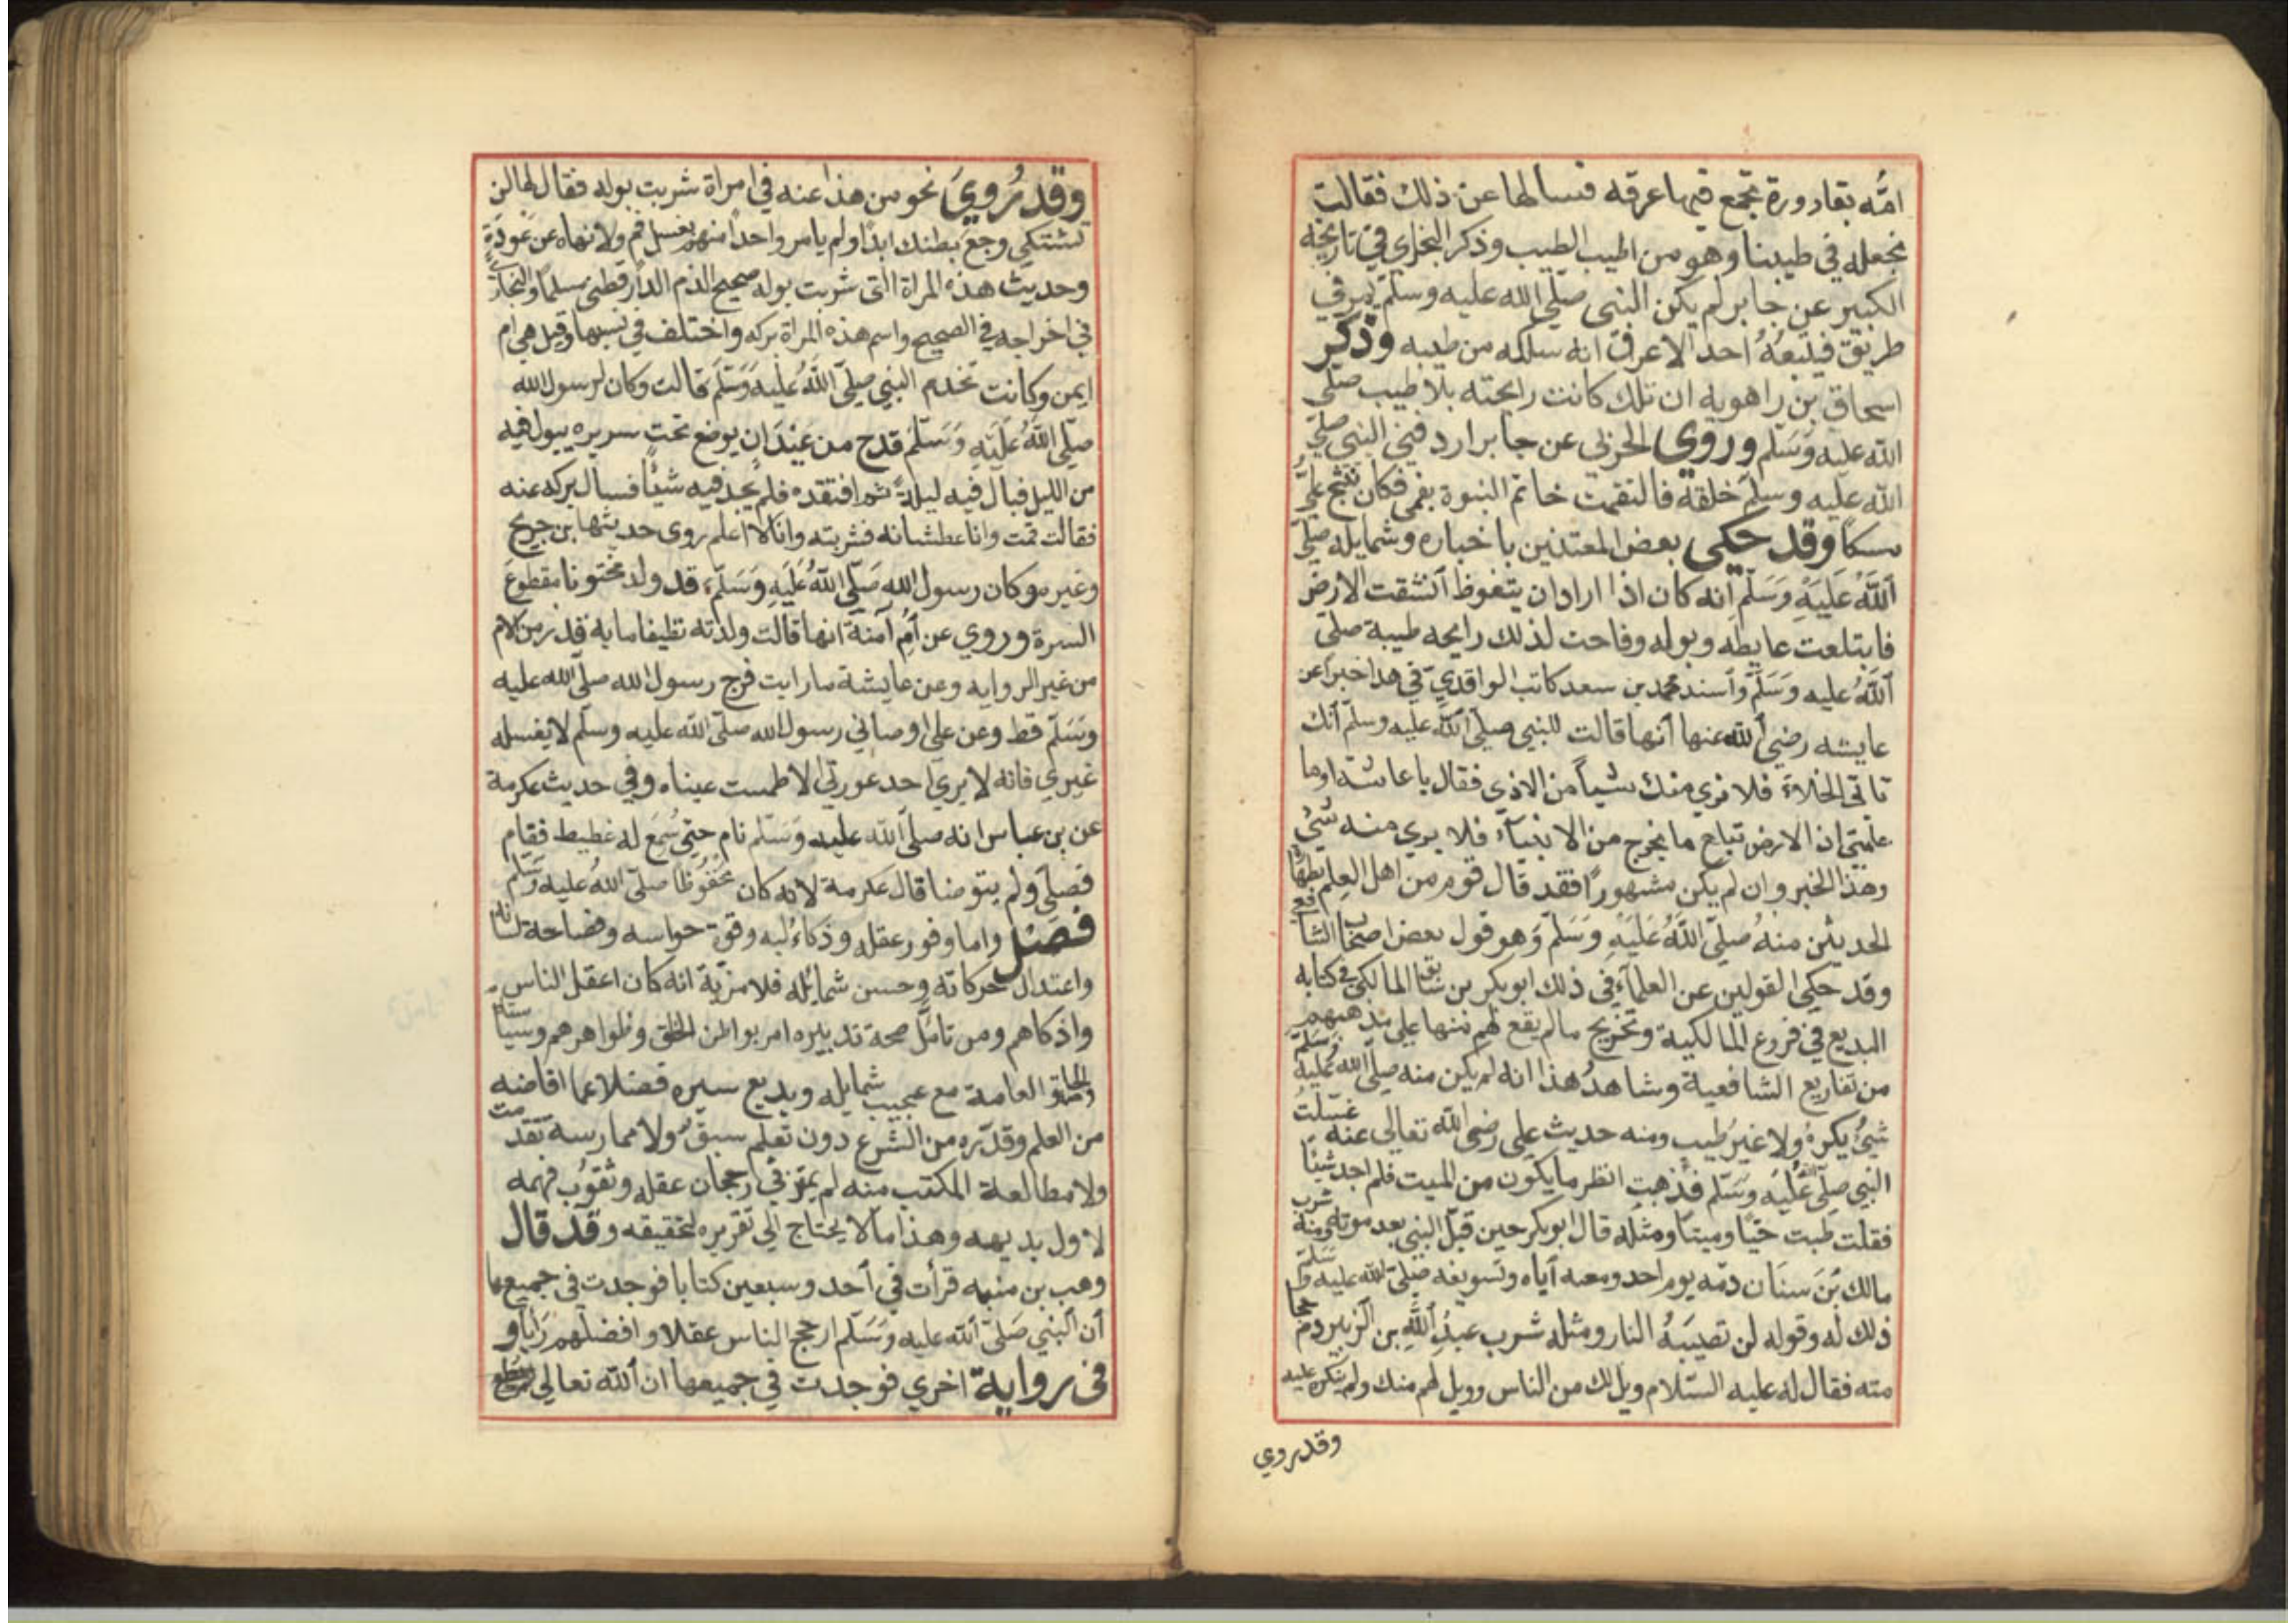 امّه بقارورة تجمع فيها عرقه فسالها عن ذلك فقالت
نجعله في طيبنا وهو من اطيب الطيب وذكر البخاري في تاريخه
الكبير عن جابر لم يكن النبي صلّي الله عليه وسلّم يمر في
طريق فيتبعهُ احد الا عرف انه سلكه من طيبه وذكر
اسحاق بن راهويه ان تلك كانت رايحته بلا طيب صلّي
الله عليه وَسَلّم وروي الحزني عن جابر اردفني النبي صلّي
الله عليه وسلّم خلفه فالتقمت خاتم النبوة بفمي فكان ينثج عليُّ
مسكا وقد حكي بعض المعتنين باخباره وشمايله صلّي
اَللّهُ عَلَيْهِ وَسَلّم اَنه كان اذا اراد ان يتغوظ اَنشقت الارض
فابتلعت غايطه وبوله وفاحت لذلك رايحه طيبة صلّي
اَللّهُ عليه وَسَلّم وأسند محمد بن سعد كاتب الواقدي في هذا خبرا عن
عايشه رضي الله عنها اَنها قالت للنبي صلّي الله عليه وسلّم اَنك
تاتي الخلاءَ فلا نري منك شيأً من الاذي فقال يا عائشة اوما
علمتي ان الارض تبلع ما يخرج من الانبيآء فلا يري منه شئ
وهذا الخبر وان لم يكن مشهوراً فقد قال قوم من اهل العِلم بطهارة
الحديثين منهُ صلّي اللّهُ عَلَيْهِ وَسَلّم وَهو قول بعض اصحاب الشافعي
وقد حكي القولين عن العلمآءِ في ذلك ابوبكر بن سابق المالكي في كتابه
البديع في فروع المالكية وتخريج مالم يقع لهم منها علي مذهبهم
من تفاريع الشافعية وشاهدُ هذا انه لم يكن منه صلّي الله عليه وسَلّم
شيئُ يكرهُ ولا غيرُ طيب ومنه حديث علي رضي الله تعالي عنه غسّلتُ
النبي صلّي اللهُ عَلَيْه وسَلّم فذهبت انظر ما يكون من الميت فلم اجد شيئًا
فقلت طبت حيًا وميتاً ومثله قال ابوبكر حين قبّل النبي بعد موته ومنه شرب
مالك بنَ سنَان دمّه يوم احد ومصه اَياه وتسويغه صلّي الله عليه وسَلّم
ذلك له وقوله لن تصيبَهُ النار ومثله شرب عبدُ اللهِ بن الزبير دم حجا
مته فقال له عليه السّلام ويل لك من الناس وويل لهم منك ولم ينكره عليه
وقد روي
وقد رُويَ نحو من هذا عنه في امراة شربت بوله فقال لها لن
تشتكي وجعَ بطنك ابدًا ولم يامر واحداً منهم بغسل فم ولا نهاه عن عَودَةٍ
وحديث هذه المراة التى شربت بوله صحيح الذم الدارقطني مسلماً والبخاري
في اخراجه في الصحيح واسم هذه المراة بركه واختلف في نسبها وقيل هي ام
ايمن وكانت تخدم النبي صلّيَ اللّهُ عَليْهِ وَسَلّمَ قالت وكان لرسول الله
صلّي اللّهُ عَلَيْهِ وَسَلّمَ قدح من عَيْدَان يوضع تحت سريره يبول فيه
من الليل فبال فيه ليلةً ثم افتقده فلم يجد فيه شيئًا فسال بركه عنه
فقالت قمت وانا عطشانه فشربته وانا لا اعلم روى حديثها ابن جريج
وغيره وكان رسول الله صَلّي اللّهُ عَلَيْهِ وَسَلّمَ قد ولد مختونا مقطوعَ
السرة وروي عن اُمِّ آمنة انها قالت ولدته نظيفا ما به قذر من كلام
من غير الروايه وعن عايشة مارايت فرج رسول الله صلّي الله عليه
وسَلّم قط وعن علي اوصاني رسول الله صلّي الله عليه وسلّم لا يغسله
غيري فانه لا يري احد عورتي الا طمست عيناه وفي حديث عكرمة
عن بن عباس انه صلّي الله عليه وَسَلّم نام حتي سُمِعَ له غطيط فقام
فصلّي ولم يتوضا قال عكرمة لانه كان محفُوظا صلّي اللهُ عليه وسَلّم
فصل واما وفور عقله وذكاءُ لبه وقوة حواسه وفصاحة لسانه
واعتدال حركاته وحسن شمائله فلا مزية انه كان اعقل الناس
واذكاهم ومن تامّل صحة تدبيره امر بواطن الخلق وظواهرهم وسياسته
العامة مع عجيب شمايله وبديع سيره فضلا عما افاضه
من العلم وقدّره من الشرع دون تعلّم سبق ولا ممارسة تقدمت
ولا مطالعة المكتب منه لم يمتر في رججان عقله وثقوُب فهمه
لاول بديهه وهذا مالا يحتاج الي تقريره لتحقيقه وقد قال
وهب بن منبه قرأت في اَحد وسبعين كتابا فوجدت في جميعها
أن اَلنبي صَلّي اَللّه عليه وَسَلّم ارجح الناس عقلا وافضلهم رَايا و
في رواية اخري فوجدت في جميعها ان اَللّه تعالي لم يعط